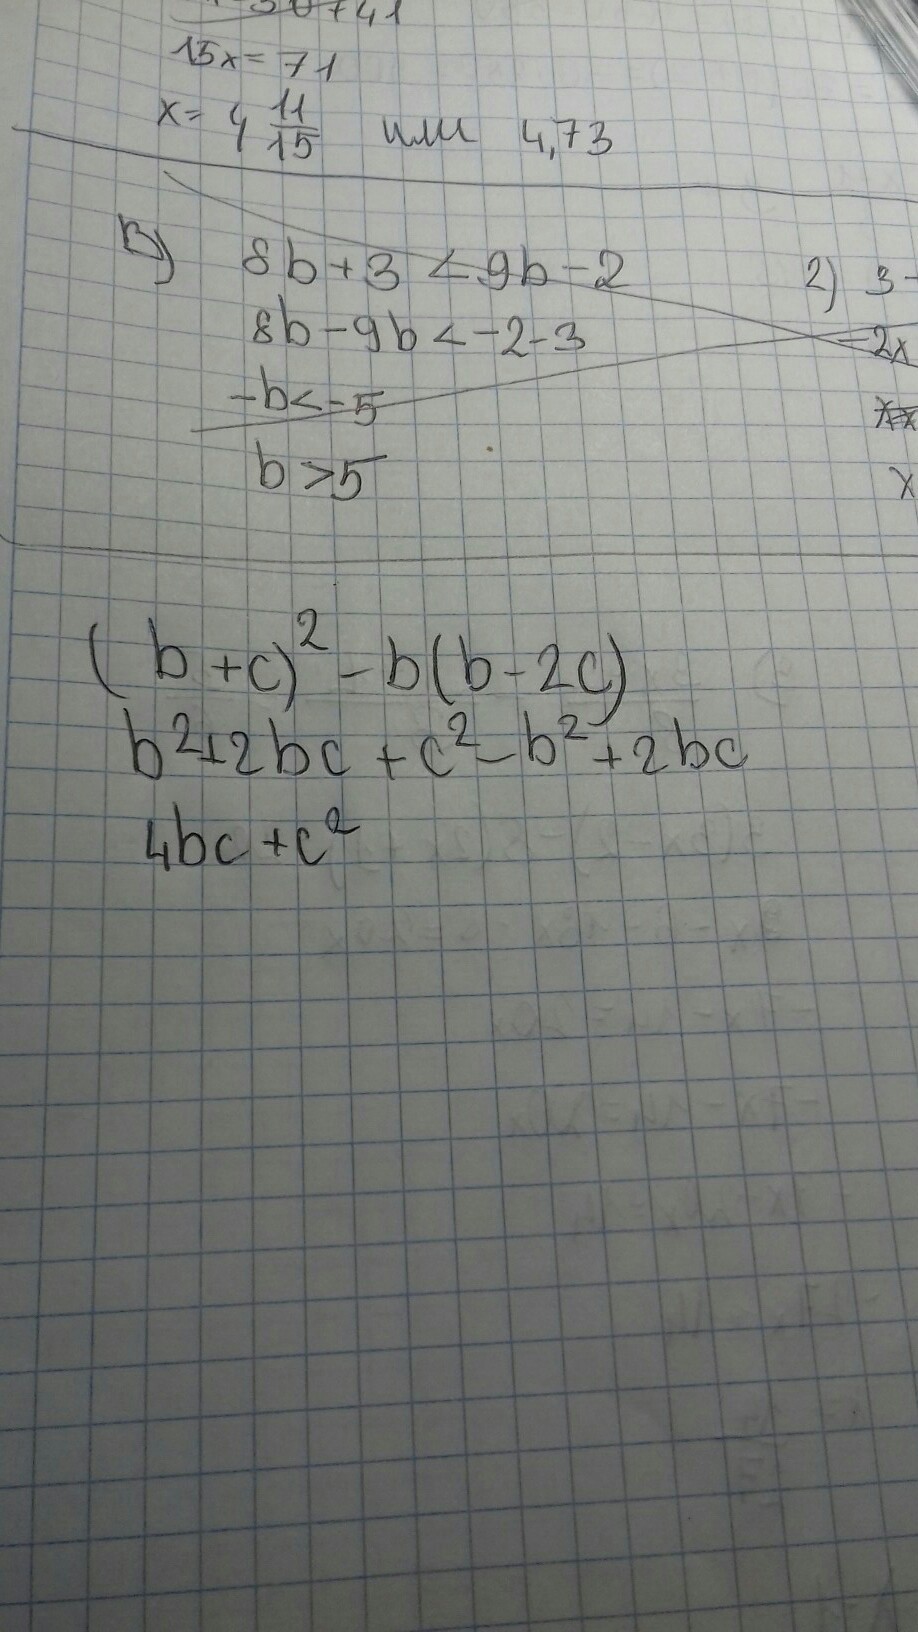 15x = 71
x = 4 11/15 или 4,73
B) 8b + 3 < 9b - 2
8b - 9b < -2 - 3
-b < -5
b > 5
2) 3 -
-2x
x
(b + c)² - b(b - 2c)
b² + 2bc + c² - b² + 2bc
4bc + c²